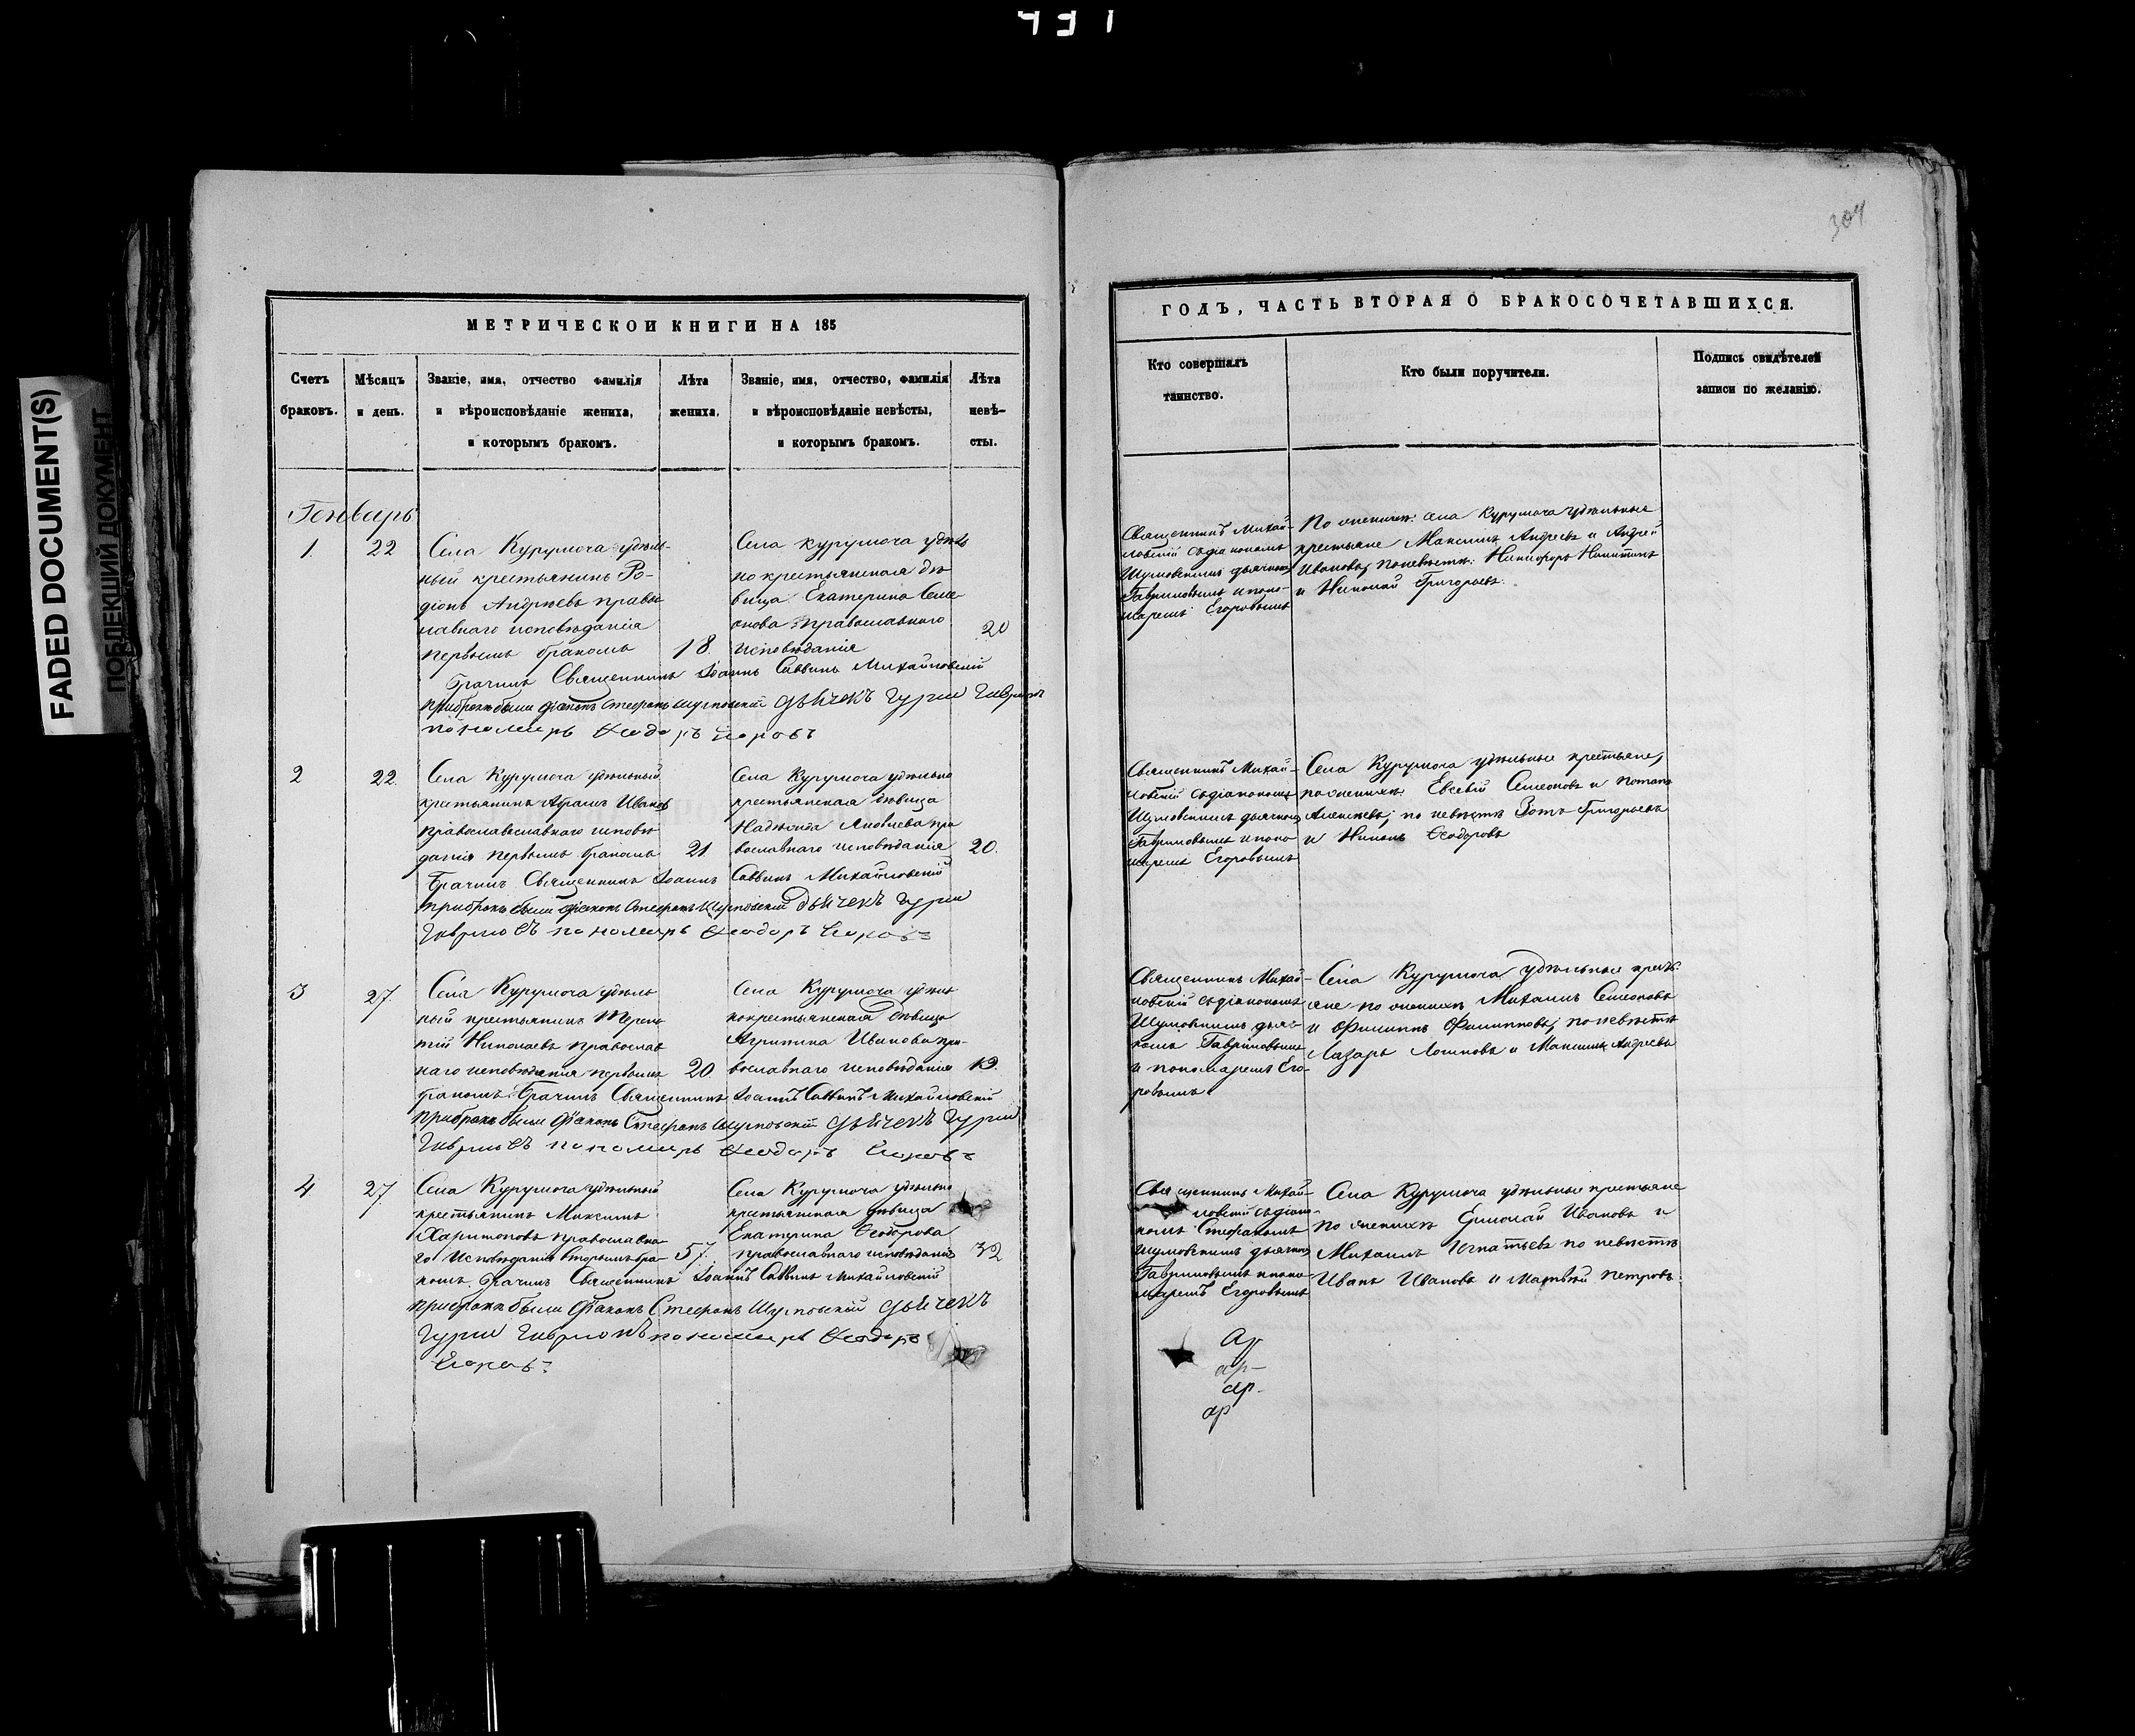 431
FADED DOCUMENT(S)
ПОБЛЕКШИЙ ДОКУМЕНТ
304
МЕТРИЧЕСКОЙ КНИГИ НА 185
Счетъ браковъ.
Мѣсяцъ и день.
Званіе, имя, отчество фамилія
и вѣроисповѣданіе жениха,
и которымъ бракомъ.
Лѣта жениха.
Званіе, имя, отчество, фамилія
и вѣроисповѣданіе невѣсты,
и которымъ бракомъ.
Лѣта невѣ-
сты.
Генварь
1. 22
Села Курумоча удѣль-
ный крестьянинъ Ро-
діонъ Андреевъ правос
лавнаго исповѣданія
первымъ бракомъ
18.
Села Курумоча удѣль
но крестьянская дѣ
вица Екатерина Семе
онова православнаго
исповѣданія
20
Брачилъ Священникъ Іоаннъ Саввинъ Михайловскій
при бракѣ были діаконъ Стефанъ Шумовскій дьячекъ Гурій Гавриловъ
пономарь Ѳеодоръ Егоровъ
2 22.
Села Курумоча удѣльный
крестьянинъ Абрамъ Ивановъ
православославнаго исповѣ
данія первымъ бракомъ
21.
Села Курумоча удѣльно
крестьянская дѣвица
Надежда Яковлева пра
вославнаго исповѣданія
20.
Брачилъ Священникъ Іоаннъ Саввинъ Михайловскій
при бракѣ были діаконъ Стефанъ Шумовскій дьячекъ Гурій
Гавриловъ пономарь Ѳеодоръ Егоровъ
3 27.
Села Курумоча удѣль
ный крестьянинъ Терен
тій Николаевъ православ
наго исповѣданія первымъ
20
Села Курумоча удѣль
нокрестьянская дѣвица
Агрипина Иванова пра-
вославнаго исповѣданія
бракомъ. Брачилъ Священникъ Іоаннъ Саввинъ Михайловскій
при бракѣ были діаконъ Стефанъ Шумовскій дьячекъ Гурій
Гавриловъ пономарь Ѳеодоръ Егоровъ
4 27.
Села Курумоча удѣльный
крестьянинъ Максимъ
Харитоновъ православна
го исповѣданія вторымъ бра-
57.
Села Курумоча удѣльно
крестьянская дѣвица
Екатерина Ѳеодорова
православнаго исповѣданія
32
комъ. Брачилъ Священникъ Іоаннъ Саввинъ Михайловскій
при бракѣ были діаконъ Стефанъ Шумовскій дьячекъ
Гурій Гавриловъ пономарь Ѳеодоръ
Егоровъ
ГОДЪ, ЧАСТЬ ВТОРАЯ О БРАКОСОЧЕТАВШИХСЯ.
Кто совершалъ
таинство.
Кто были поручители.
Подпись свидѣтелей
записи по желанію.
Священникъ Михай-
ловскій съ діакономъ
Шумовскимъ дьячкомъ
Гавриловымъ и поно-
маремъ Егоровымъ
По женихѣ: села Курумоча удѣльные
крестьяне Максимъ Андреевъ и Андрей
Ивановъ; по невѣстѣ: Никифоръ Никитинъ
и Николай Григорьевъ.
Священникъ Михай-
ловскій съ діакономъ
Шумовскимъ дьячкомъ
Гавриловымъ и поно
маремъ Егоровымъ
Села Курумоча удѣльные крестьяне,
по женихѣ: Евсевій Семеоновъ и Потапъ
Алексѣевъ; по невѣстѣ Зотъ Григорьевъ
и Никонъ Ѳеодоровъ
Священникъ Михай-
ловскій съ діакономъ
Шумовскимъ дьяч-
комъ Гавриловымъ
и пономаремъ Его-
ровымъ
Села Курумоча удѣльные кресть-
яне по женихѣ Михаилъ Семеоновъ
и Филиппъ Филипповъ; по невѣстѣ
Лазарь Логиновъ и Максимъ Андреевъ
Священникъ Михай-
ловскій съ діако-
номъ Стефаномъ
Шумовскимъ дьячкомъ
Гавриловымъ и поно
маремъ Егоровымъ
Села Курумоча удѣльные крестьяне
по женихѣ Ермолай Ивановъ и
Михаилъ Игнатьевъ по невѣстѣ
Иванъ Ивановъ и Матвѣй Петровъ.
Ар
ар-
ар-
ар